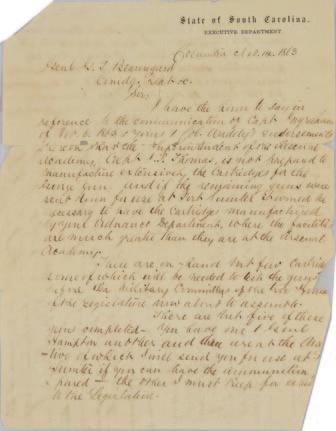 State of South Carolina.
EXECUTIVE DEPARTMENT
Columbia Nov. 14. 1863
Genl G. T. Beauregard
Comdg. Dept &c
Sir,
I have the honor to say in
reference to the communication of Capt
of Nov 6 1863 & yours endorsements
that the Superintendent of the Arsenal
Academy, Capt J. P. Thomas, is not prepared to
manufacture extensively the Cartridges for the
gun, and if the remaining guns were
sent down for use at Fort Sumter it would be
necessary to have the Cartridges manufactured
by your Ordnance Department, where the facilities
are much greater than they are at the Arsenal
Academy.
There are on hand but few Cartridges
some of which will be needed to test the guns
before the Military Committees of the two Houses
of the Legislature now about to assemble.
There are but five of these
guns completed — You have one & Genl
Hampton another and three are at the
two of which I will send you for use at
Sumter if you can have the ammunition
pared — the other I must keep for
to the Legislature.